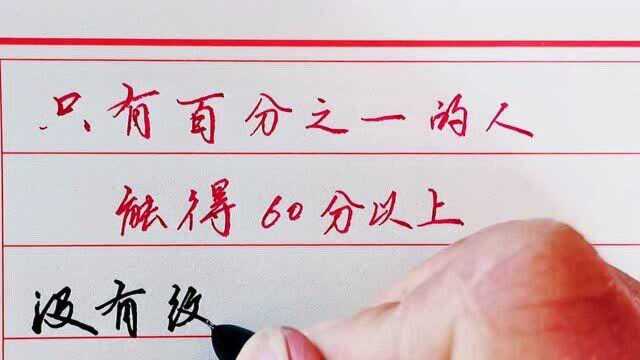 只有百分之一的人
能得60分以上
没有